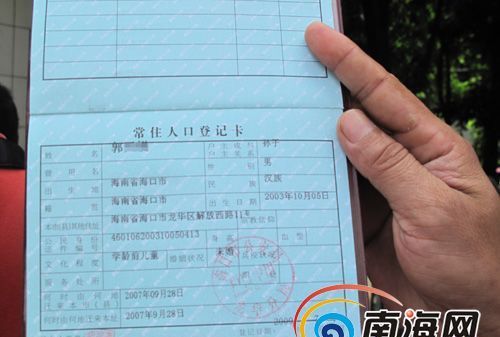 常住人口登记卡
姓名 郭 户主或与户主关系 孙子
曾用名 性别 男
出生地 海南省海口市 民族 汉族
籍贯 海南省海口市 出生日期 2003年10月05日
本市(县)其他住址 海南省海口市龙华区解放西路11号 宗教信仰
公民身份证件编号 460106200310050413 身高 血型
文化程度 学龄前儿童 婚姻状况 未婚 兵役状况
服务处所
何时由何地迁来本市(县) 2007年09月28日
何时由何地迁来本址 2007年9月28日
登记日期: 2009
南海网